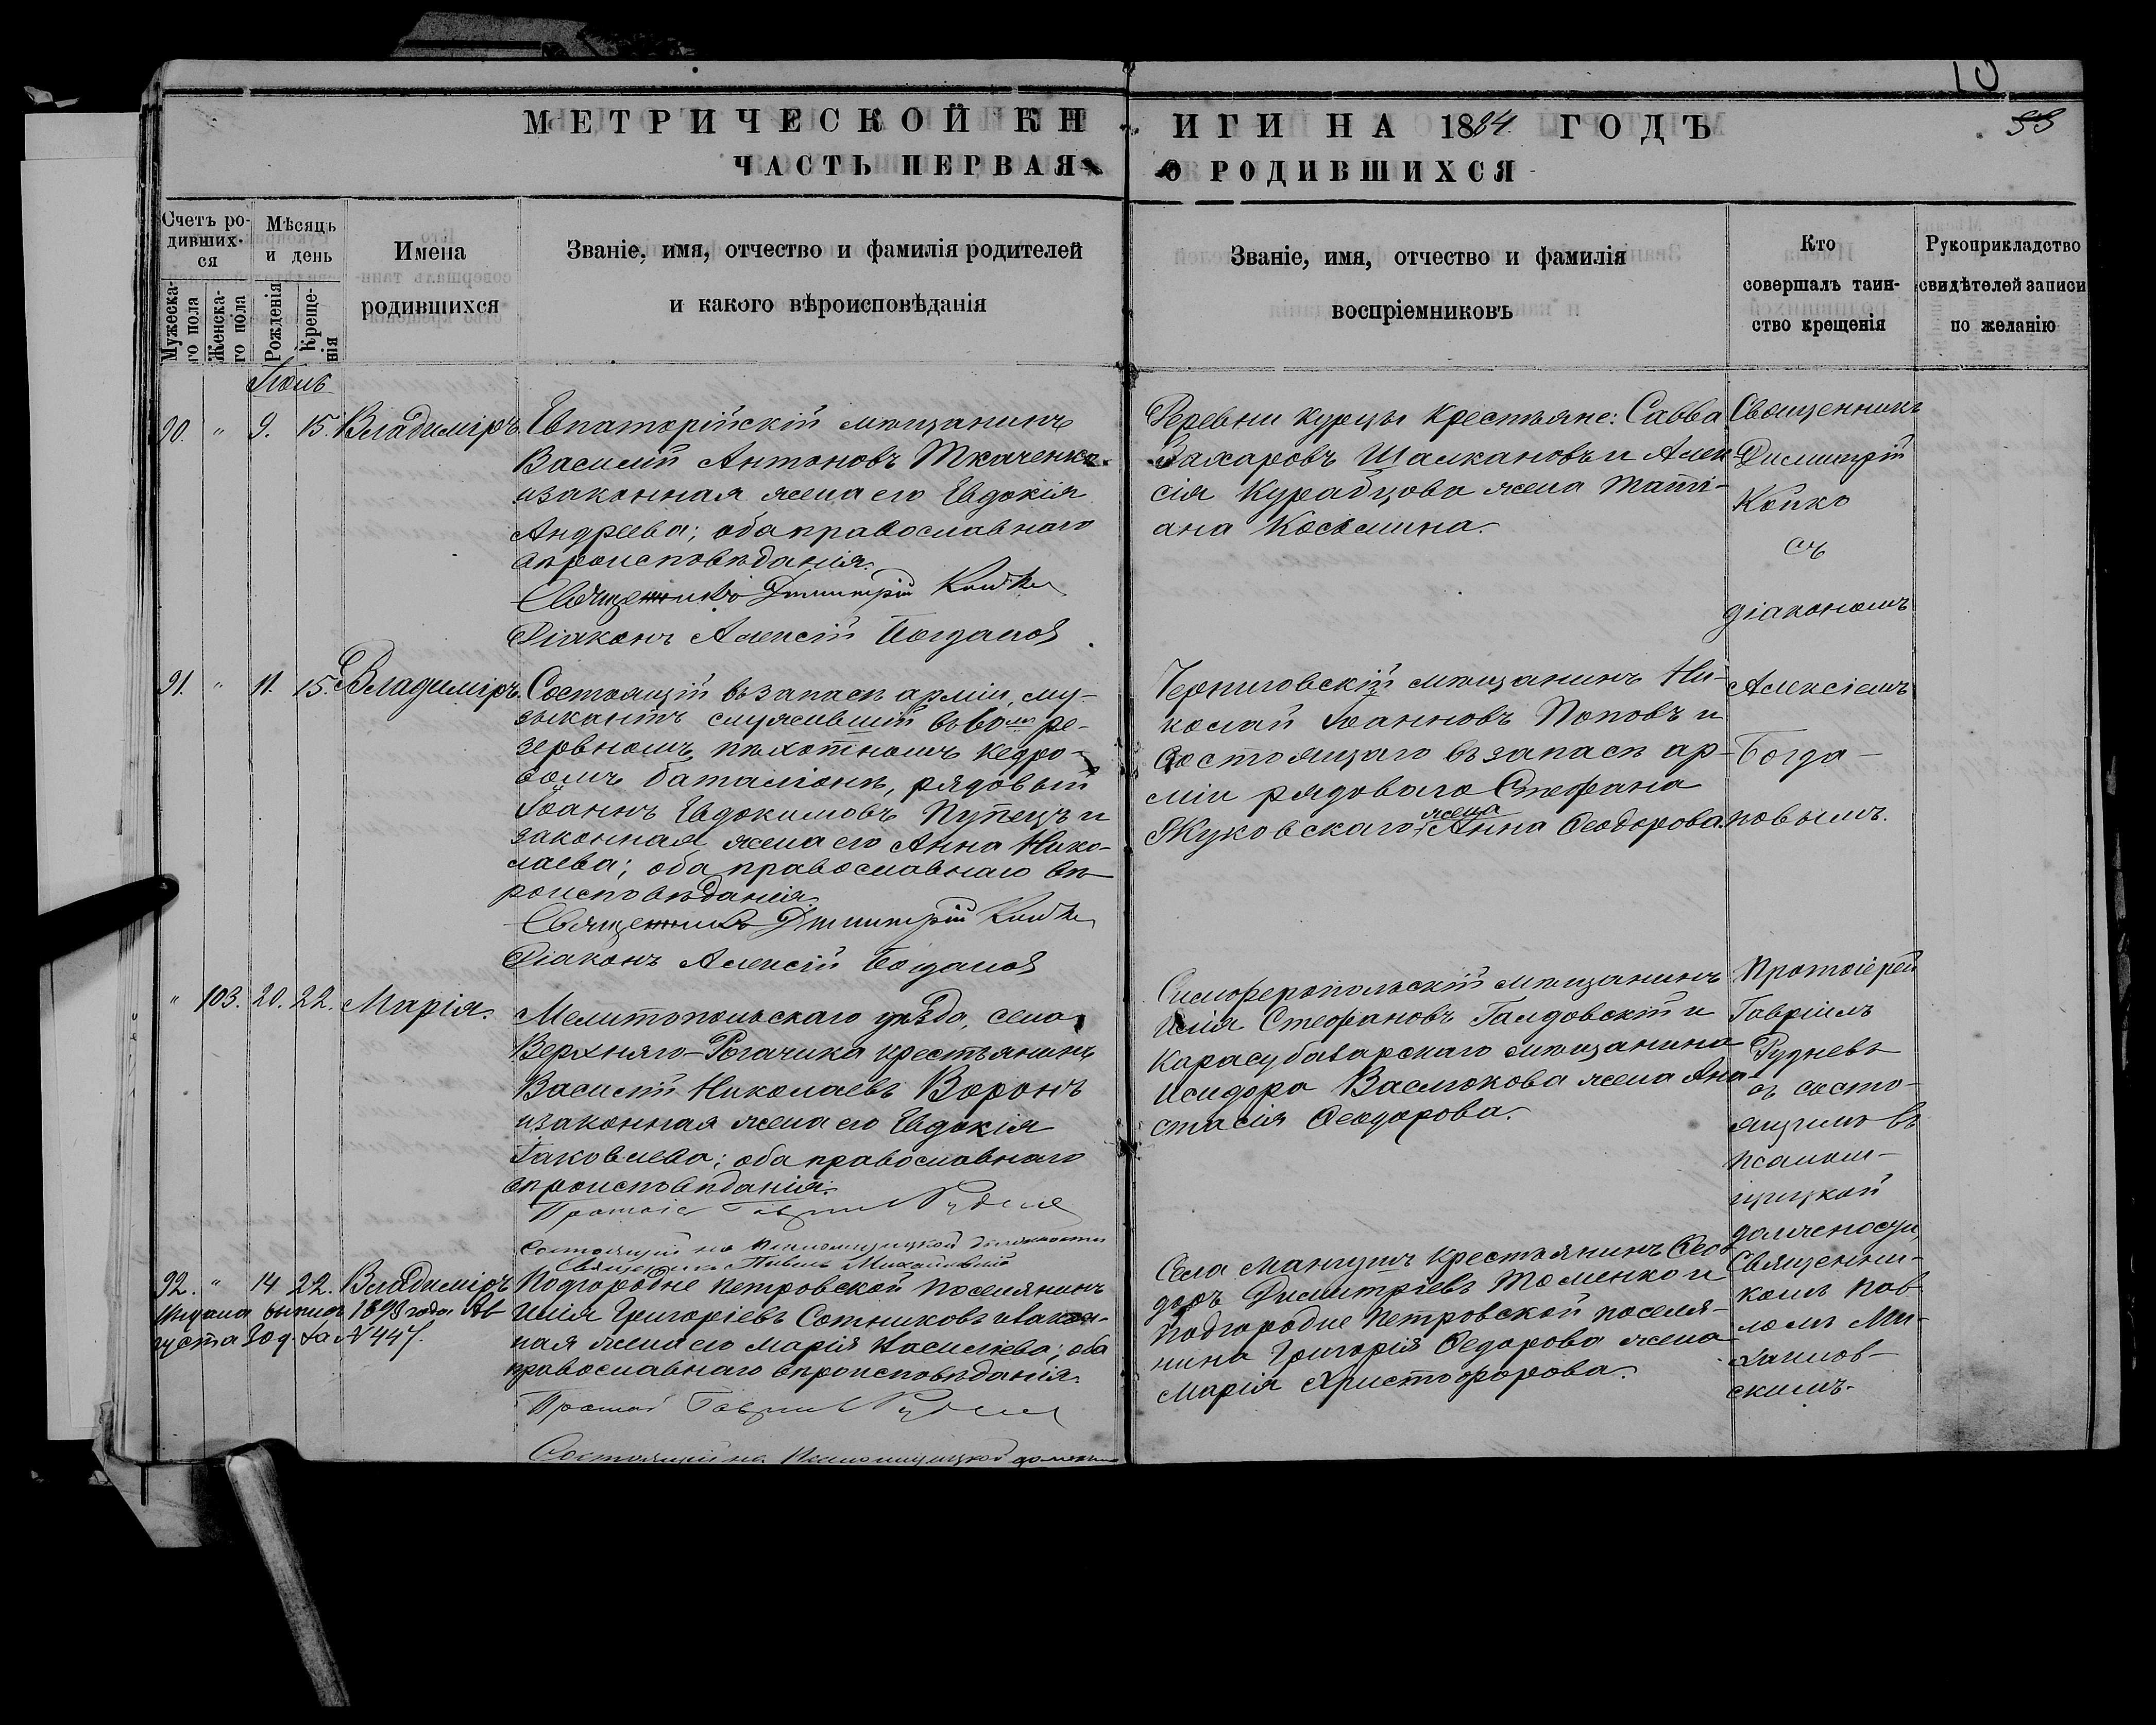 10
МЕТРИЧЕСКОЙ КНИГИ НА 1884. ГОДЪ
ЧАСТЬ ПЕРВАЯ О РОДИВШИХСЯ
Счетъ ро-
дивших-
ся
Мужеска-
го пола
Женска-
го пола
Мѣсяцъ
и день
Рожденія
Креще-
нія
Имена
родившихся
Званіе, имя, отчество и фамилія родителей
и какого вѣроисповѣданія
Званіе, имя, отчество и фамилія
воспріемниковъ
Кто
совершалъ таин-
ство крещенія
Рукоприкладство
свидѣтелей записи
по желанію
90. " 9. 15. Владиміръ.
Евпаторійскій мѣщанинъ
Василій Антоновъ Ткаченко
и законная жена его Евдокія
Андреева; оба православнаго
вѣроисповѣданія.
Священникъ Димитрій Койко
Діаконъ Алексій Богдановъ
Деревни Курцы крестьяне: Савва
Захаровъ Шалкановъ и Алек
сія Курабцова жена Таті-
ана Косьмина.
Священникъ
Димитрій
Койко
съ
діакономъ
91. " 11. 15. Владиміръ.
Состоящій въ запасѣ арміи, му-
зыкантъ служившій въ 60мъ ре-
зервномъ пѣхотномъ кадро-
вомъ баталіонѣ, рядовый
Іоаннъ Евдокимовъ Пупецъ и
законная жена его Анна Нико-
лаева; оба православнаго вѣ-
роисповѣданія.
Священникъ Димитрій Койко
Діаконъ Алексій Богдановъ
Черниговскій мѣщанинъ Ни-
колай Іоанновъ Поповъ и
состоящаго въ запасѣ ар-
міи рядоваго Стефана
жена
Жуковскаго Анна Ѳеодорова.
Алексіемъ
Богда-
новымъ.
" 103. 20. 22. Марія.
Мелитопольскаго уѣзда, села
Верхняго-Рогачика крестьянинъ
Василій Николаевъ Воронъ
и законная жена его Евдокія
Іаковлева; оба православнаго
вѣроисповѣданія.
Протоіе Гавріилъ Рудневъ
Состоящій на псаломщицкой должности
Священникъ Павелъ Михайловскій
Симферопольскій мѣщанинъ
Илія Стефановъ Галдовскій и
Карасубазарскаго мѣщанина
Исидора Василькова жена Ана-
стасія Ѳеодорова.
Протоіерей
Гавріилъ
Рудневъ
съ состо-
ящимъ въ
псалом-
щицкой
должности
92. " 14. 22. Владиміръ
Выдана выпись 1898 года Ав
густа 30 д. за № 447.
Подгородне Петровской поселянинъ
Илія Григоріевъ Сотниковъ и закон-
ная жена его Марія Васильева; оба
православнаго вѣроисповѣданія.
Протоі Гавріилъ Рудневъ
Состоящій на псаломщицкой должно
Села Мангушъ крестьянинъ Ѳео
доръ Димитріевъ Томенко и
подгородне Петровской поселя-
нина Григорія Ѳедорова жена
Марія Христофорова.
Священни-
комъ Пав
ломъ Ми-
хайлов-
скимъ.